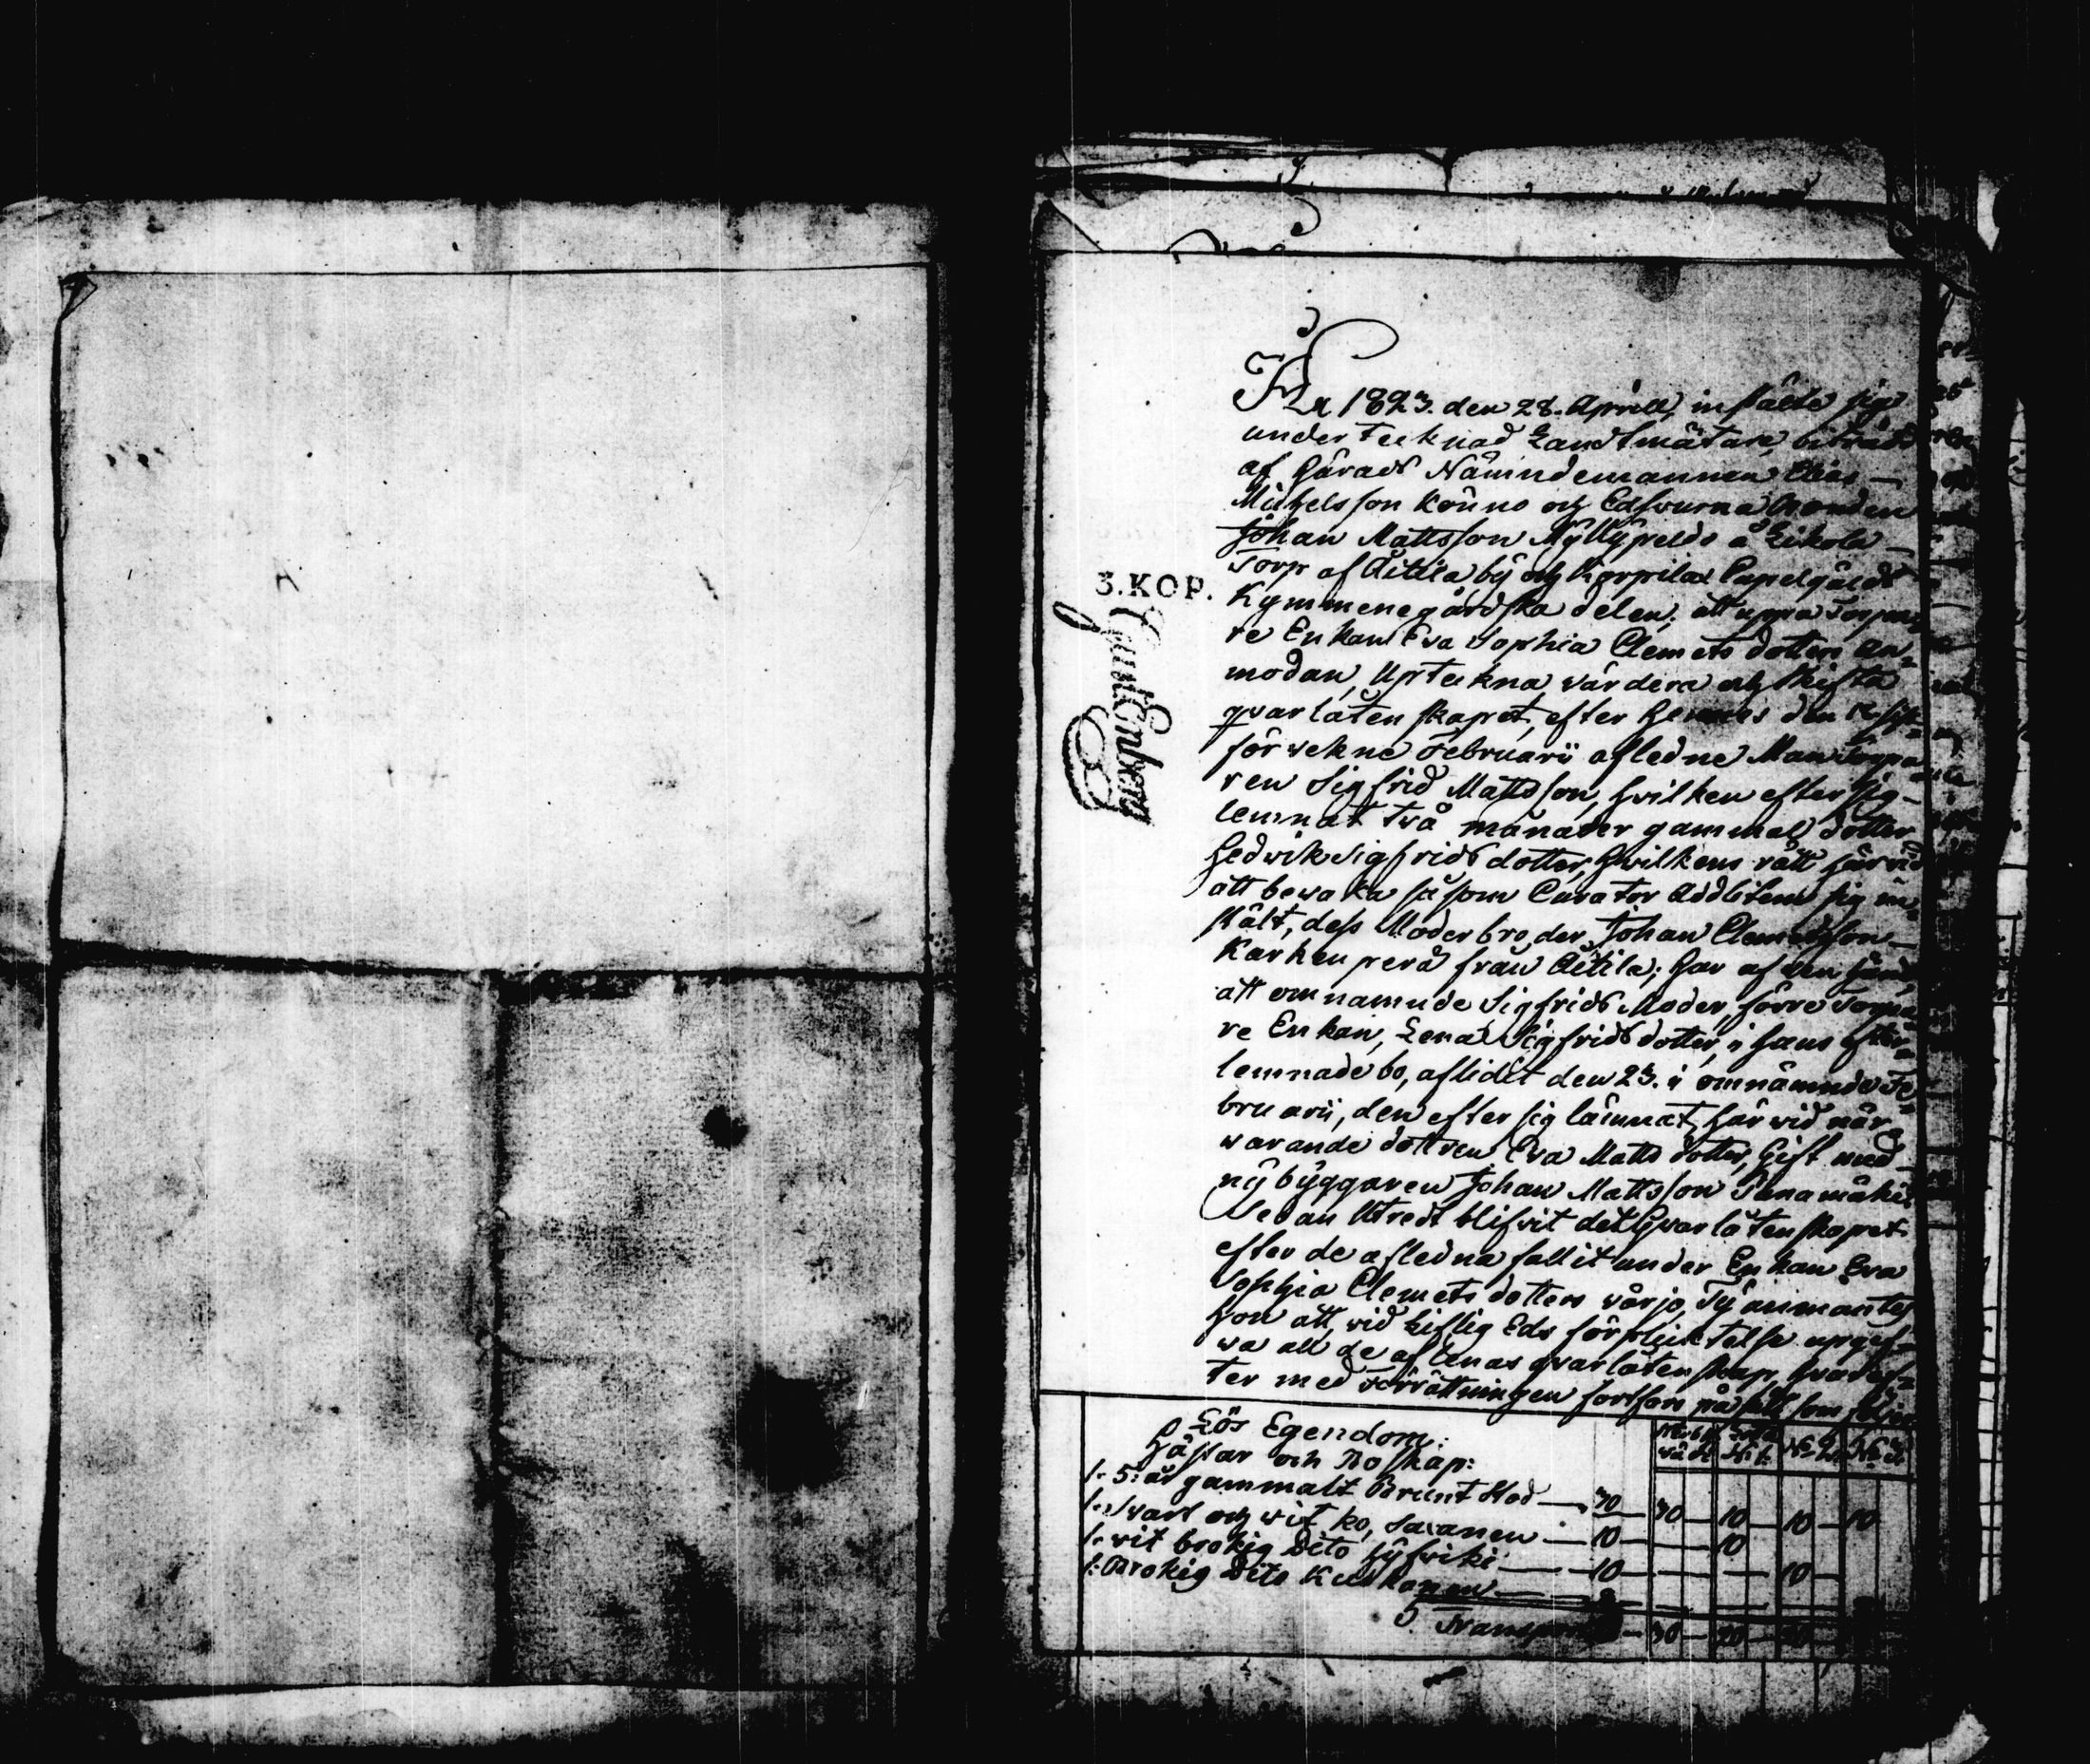 År 1823. den 28. Aprill, instälte sig
undertecknad Landtmätare, biträdd
af Härads Nämndemannen Elias
Michelsson Könnö och Edsvurna Bonden
Johan Mattsson Myllypeldo å Likola
Torp af Äitila by och Karpilax Capelgälds
Kymmenegårdska delen; att uppå Torpa-
re Enkan Eva Sophia Clemets dotters an-
modan, Upteckna, värdera och skifta
qvarlåtenskapet, efter hennes den
förvekne Februarii afledne Man Torpa-
ren Sigfrid Mattsson, hvilken efter sig
lemnat två månader gammal dotter
Hedvik Sigfrids dotter, hvilkens rätt härvid
att bevaka såsom Curator adlitem sig in-
stält, dess Moderbroder, Johan Clemetsson
Karhenperä från Äitila; har af den händ,
att omnämnde Sigfrids Moder, förre Torpa-
re Enkan, Lena Sigfrids dotter, i hans efter-
lemnade bo, aflidit den 23. i omnämnde Fe-
bruarii, den efter sig lämnat, här vid när-
warande dottren Eva Matts dotter, Gift med
nybyggaren Johan Mattsson
Sedan Utredt blifvit det Qvarlåtenskapet
efter de afledna fallit under Enkan Eva
Sophia Clemets dotters vårjo, Ty animantes
hon att vid Liflig Eds förpligtelse upgif-
wa all de aflednas qvarlåtenskap, hvaref-
ter med Förrättningen fortfors på sätt som följer
3. KOP.
Lös Egendom:
Hästar och Boskap:
N: 1. N: 2. N: 3.
1. 5: år gammalt Brunt Stod — 30 — 30 — 10 — 10 — 10
1. Svart och vit ko, — 10 — 10
1. vit brokig Dito — 10 — 10
1. Brokig Dito
Transport — 30